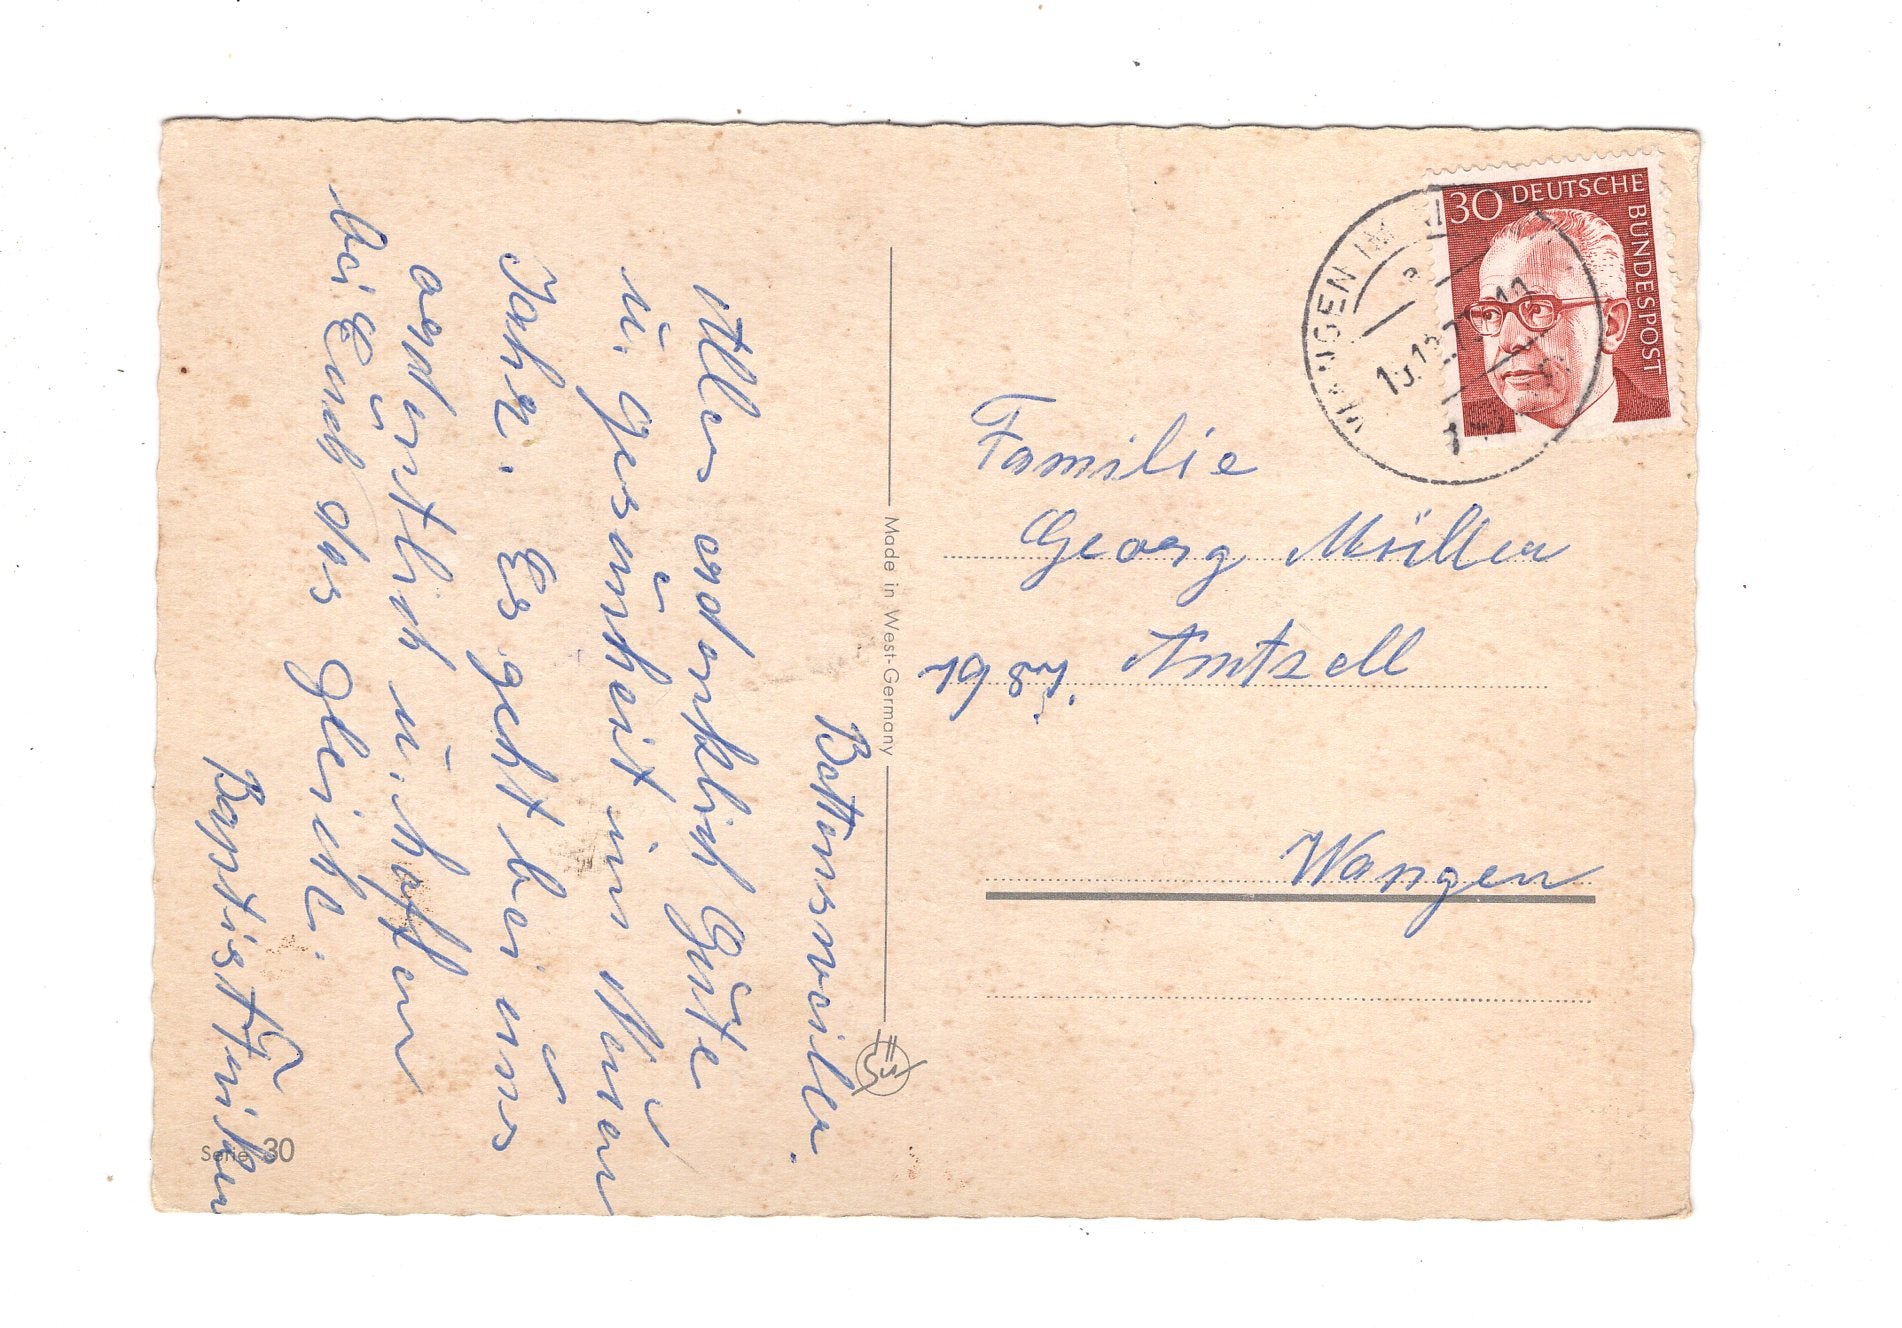 Bettensweiler.
Alles erdenklich Gute
u. Gesundheit im Neuen
Jahr. Es geht bei uns
ordentlich u. hoffen
bei Euch das Gleiche.
Baptist
Serie 30
Made in West-Germany
30 DEUTSCHE
BUNDESPOST
WANGEN IM
Familie
Georg Müller
Amtzell
Wangen